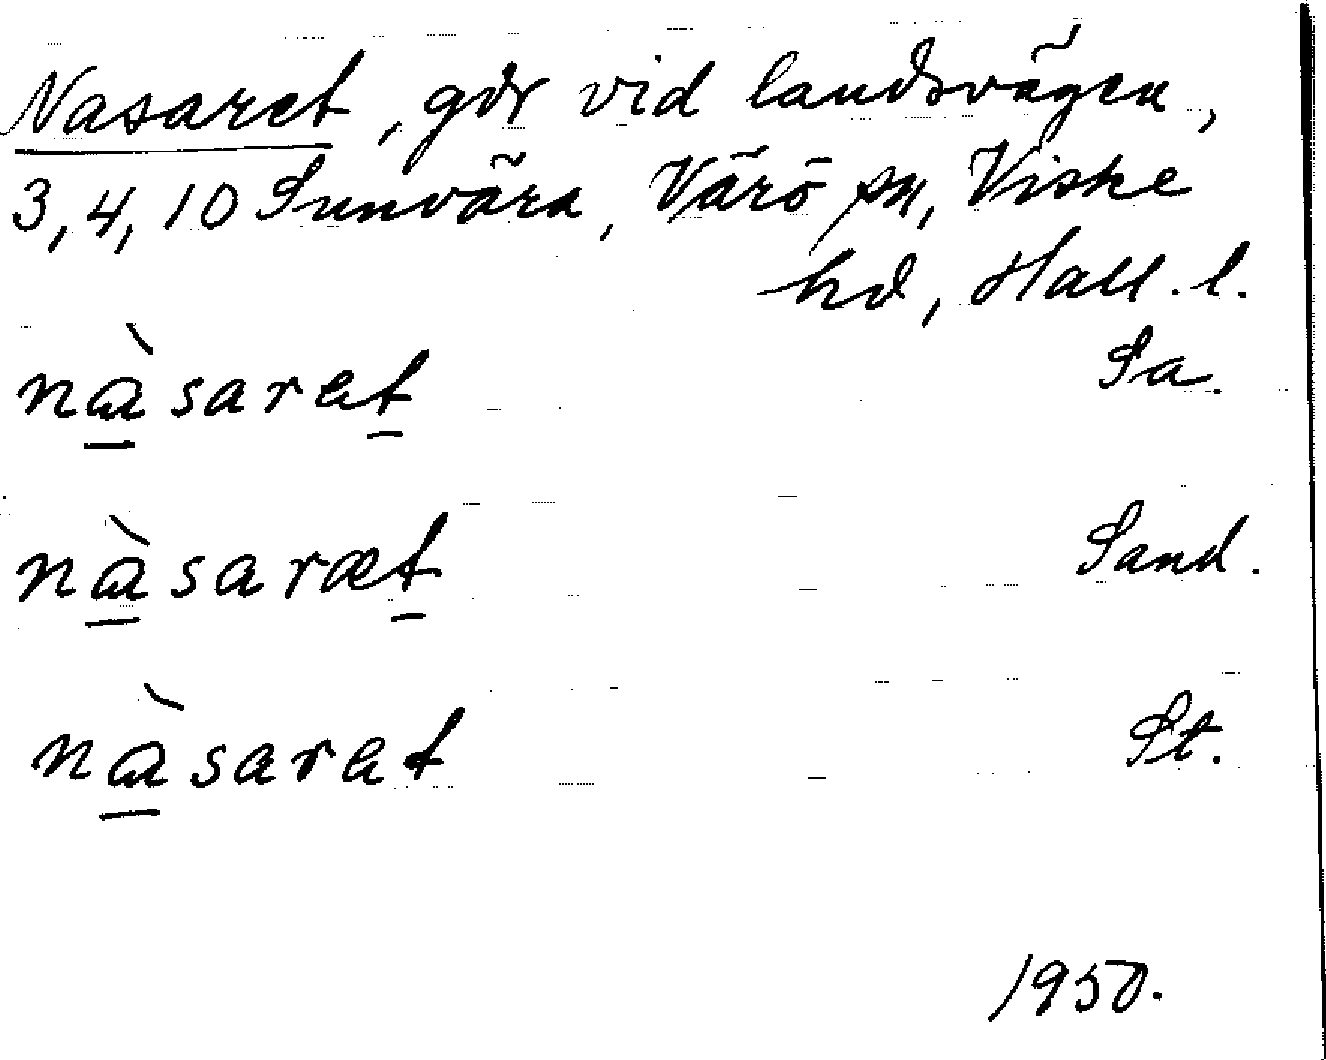 Nasaret, gdr vid landsvägen,
3, 4, 10 Sunvära, Värö sn, Viske
hd, Hall. l.
nàsaret Sa.
nàsaræt Sand.
nàsarat St.
1950.